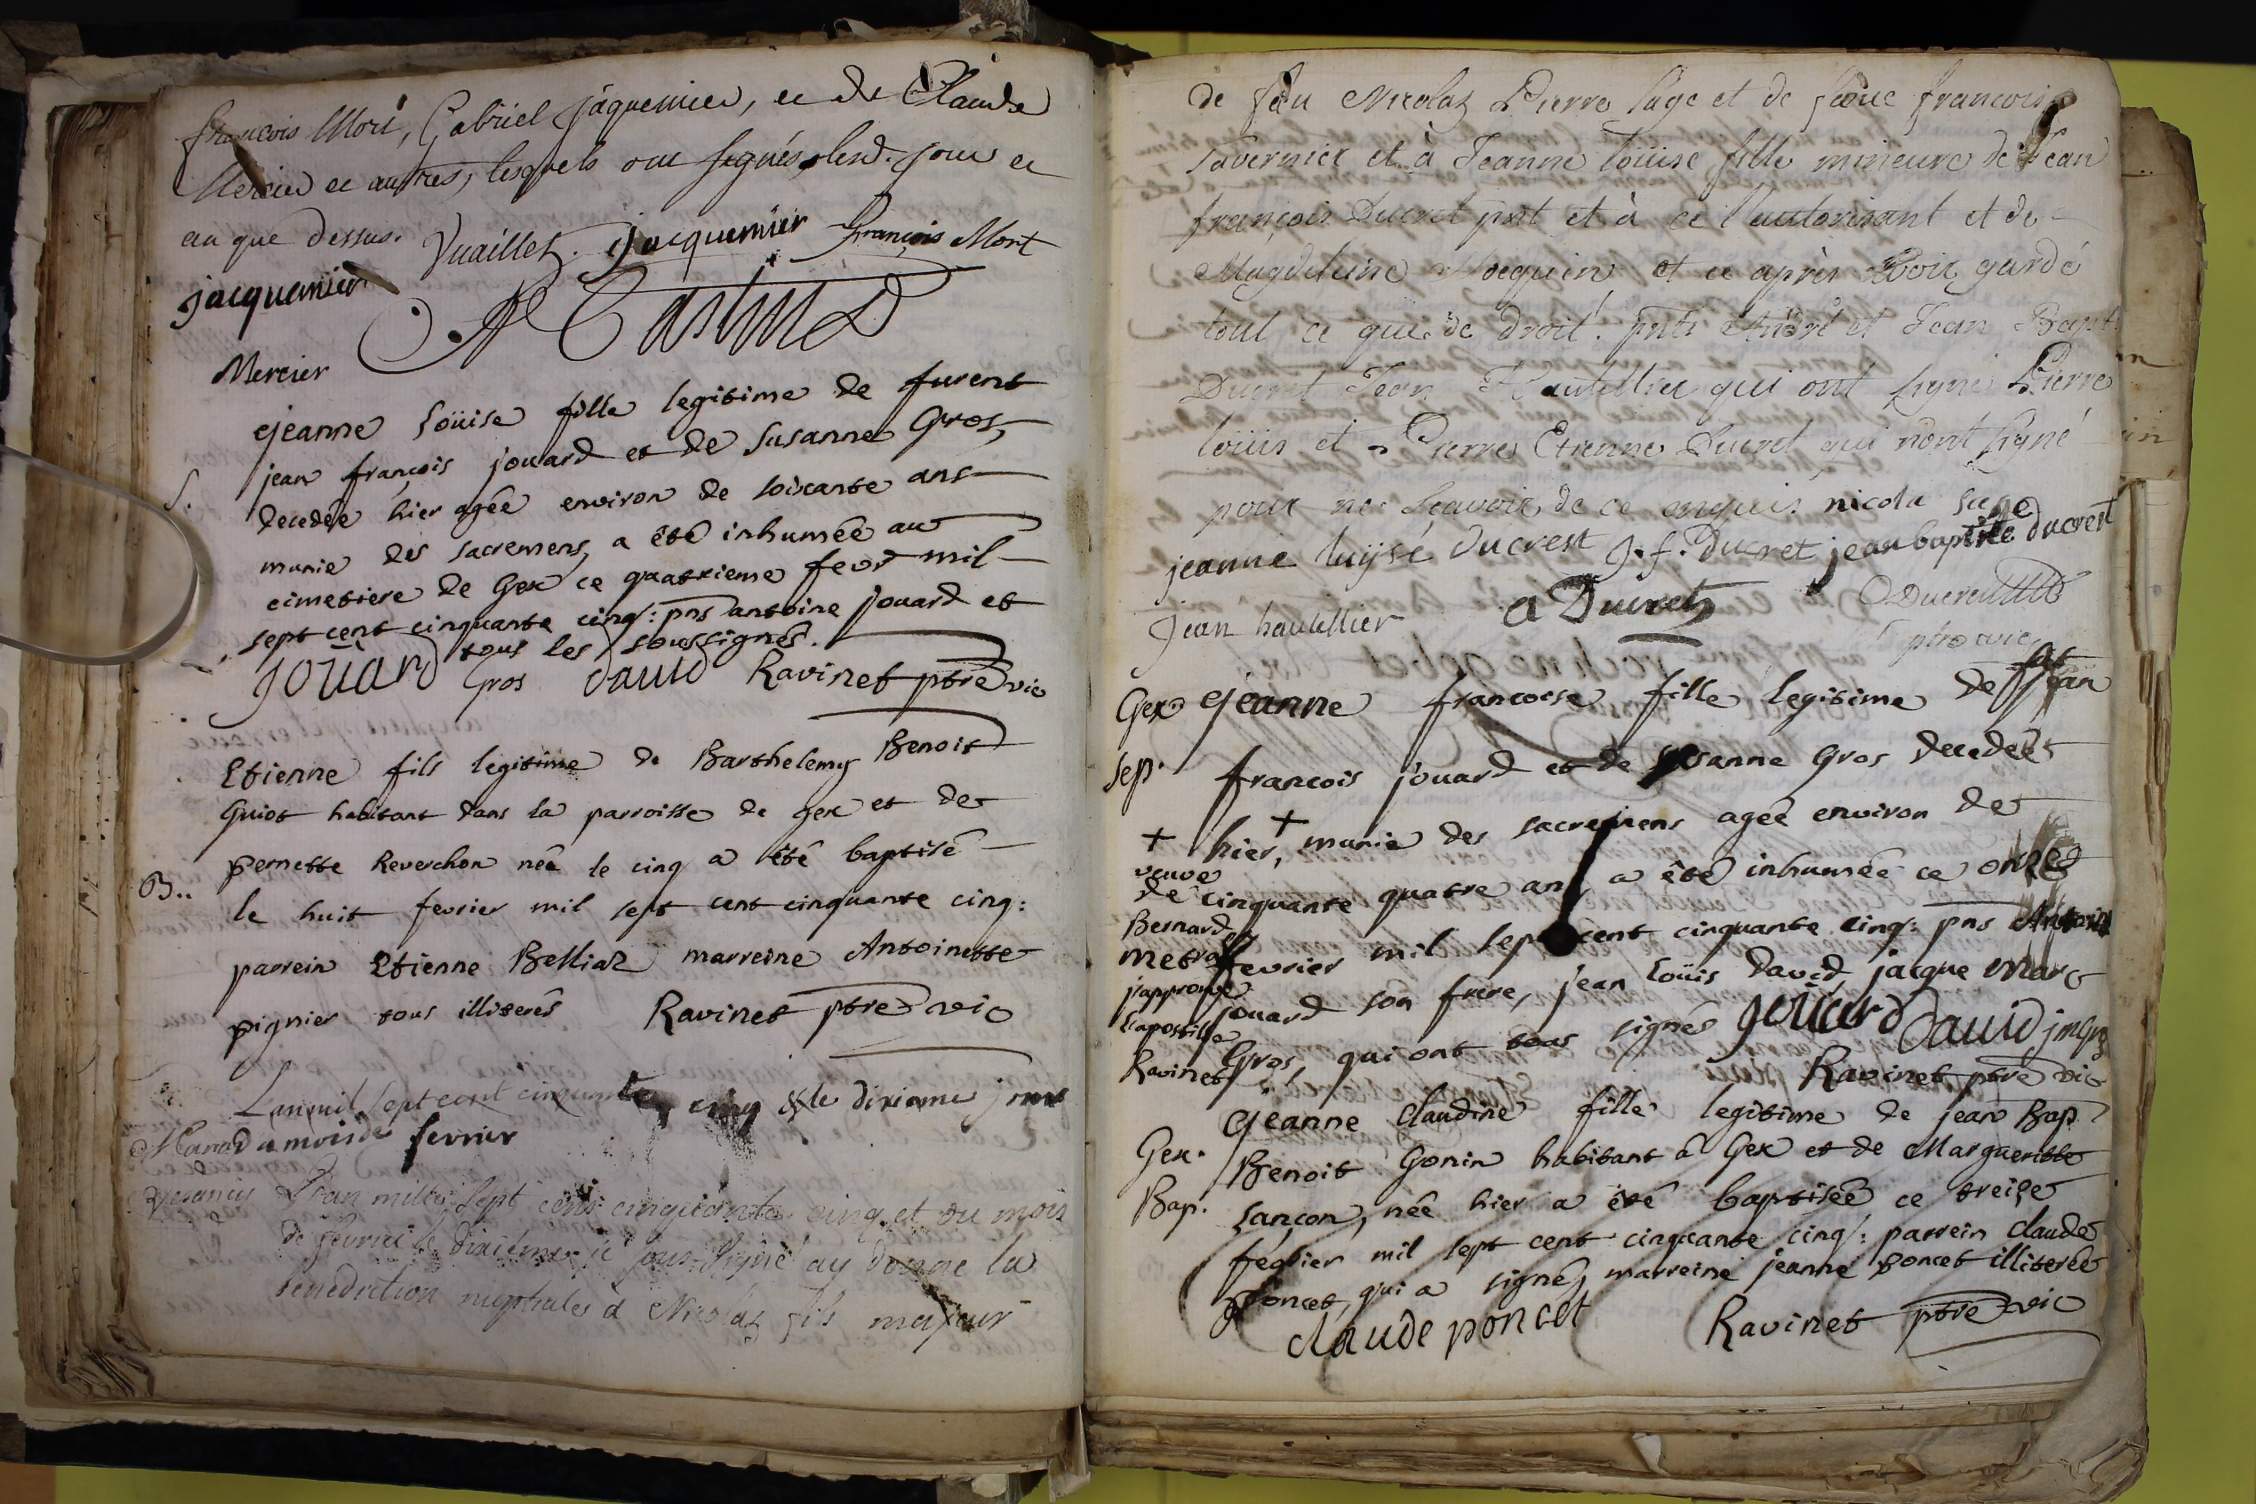 francois Mort, Gabriel jaquemier, et de Claude
Mercier et autres, lesquels ont signés lesd. jour et
an que dessus. Vuaillet. jacquemier François Mort
jacquemier
Mercier
jeanne Loüise fille legitime de furent
jean françois jouard et de Susanne Gros,
S. decedée hier agée environ de soixante ans
munie des sacremens, a été inhumée au
cimetiere de Gex ce quatrieme fevr mil
sept cent cinquante cinq: pns antoine jouard et
tous les soussignés.
joüard Gros david Ravinet ptre vic
Etienne fils legitime de Barthelemy Benoit
Guiot habitant dans la parroisse de gex et de
pernette Reverchon née le cinq a été baptisé
B.. le huit fevrier mil sept cent cinquante cinq:
parrein Etienne Belliaz marreine Antoinette
pignier tous illiterés Ravinet ptre vic
Lan mil sept cent cinquante cinq & le dixieme jour
du mois de fevrier
L'an mille sept cent cinquante cinq et du mois
de fevrier le dixieme je sous signé ay donné la
benediction nuptiales à Nicolaz fils majeur
de feu Nicolaz Pierre Sage et de feue francoise
Tavernier et à Jeanne Loüise fille mineure de Jean
françois Ducret pnt et à ce l'autorisant et de
Magdeleine Mocquin et ce après avoir gardé
tout ce que de droit. pnts André et Jean Bapt.
Ducret Jean Hautellier qui ont signé Pierre
loüis et Pierre Etienne Ducret qui n'ont signé
pour ne sçavoir de ce enquis nicola sage
jeanne luÿse Ducrest J. f. Ducret jean baptiste ducrest
Jean hautellier A Ducret Ducret
ptre vic
Gex jeanne francoise fille legitime de fut jean
Sep. francois jouard et de Susanne Gros decedée
+ hier, + munie des sacremens agée environ de
veuve de Bernard Metral
j'approuve l'apostille
Ravinet
cinquante quatre ans, a été inhumée ce onze
fevrier mil sept cent cinquante cinq: pns Antoine
jouard son frere, jean Loüis David, jacque Marc
Gros, qui ont tous signés joüard David jm Gros
Ravinet ptre vic
jeanne Claudine fille legitime de jean Bap.
Gex. Benoit Gonin habitant à Gex et de Margueritte
Bap. Lançon, née hier a été baptisée ce treize
fevrier mil sept cent cinquante cinq: parrein claude
Poncet, qui a signé, marreine jeanne Poncet illiterée
claude poncet Ravinet ptre vic